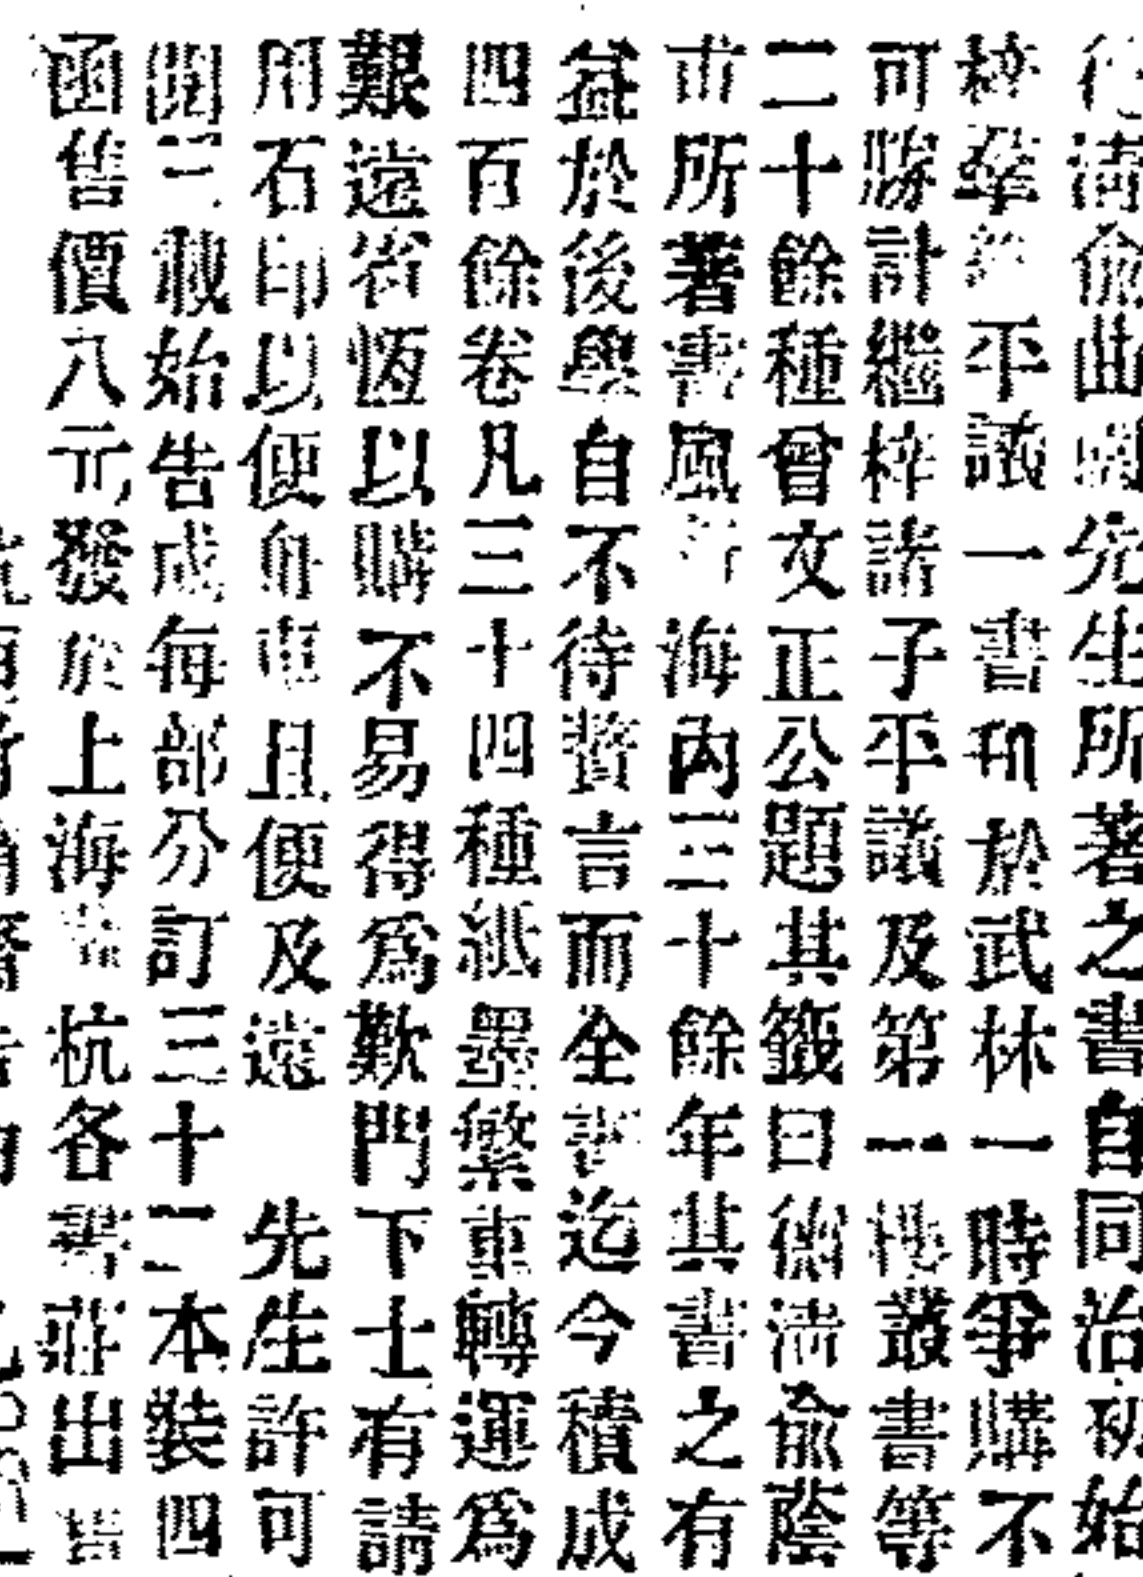 德清俞曲園先生所著之書自同治初始
梓羣經平議一書刊於武林一時爭購不
可勝計繼梓諸子平議及第一樓叢書等
二十餘種曾文正公題其籤曰德清俞蔭
甫所著書風行海內三十餘年其書之有
益於後學自不待贅言而全書迄今積成
四百餘卷凡三十四種紙墨繁重轉運爲
艱遠省恆以購不易得爲歎門下士有請
用石印以便舟車且便及遠 先生許可
閱三載始告成每部分訂三十二本裝四
函售價八元發於上海 杭各書莊出售